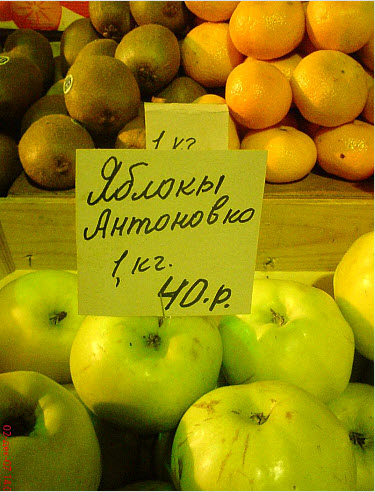 1 кг
Яблоки
Антоновко
1 кг.
40.р.